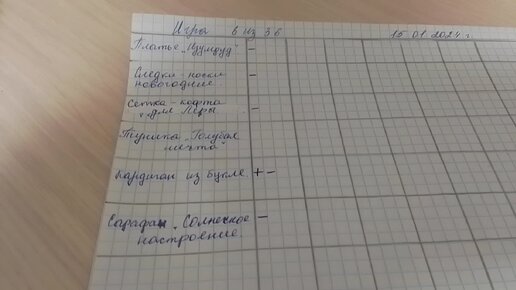 Игра 6 из 36 15.01.2024 г.
Платье "Изумруд" -
Следки-носки -
новогодние.
Сетка-кофта -
для Леры.
Туника "Голубая
мечта"
Кардиган из букле. + -
Сарафан "Солнечное -
настроение.